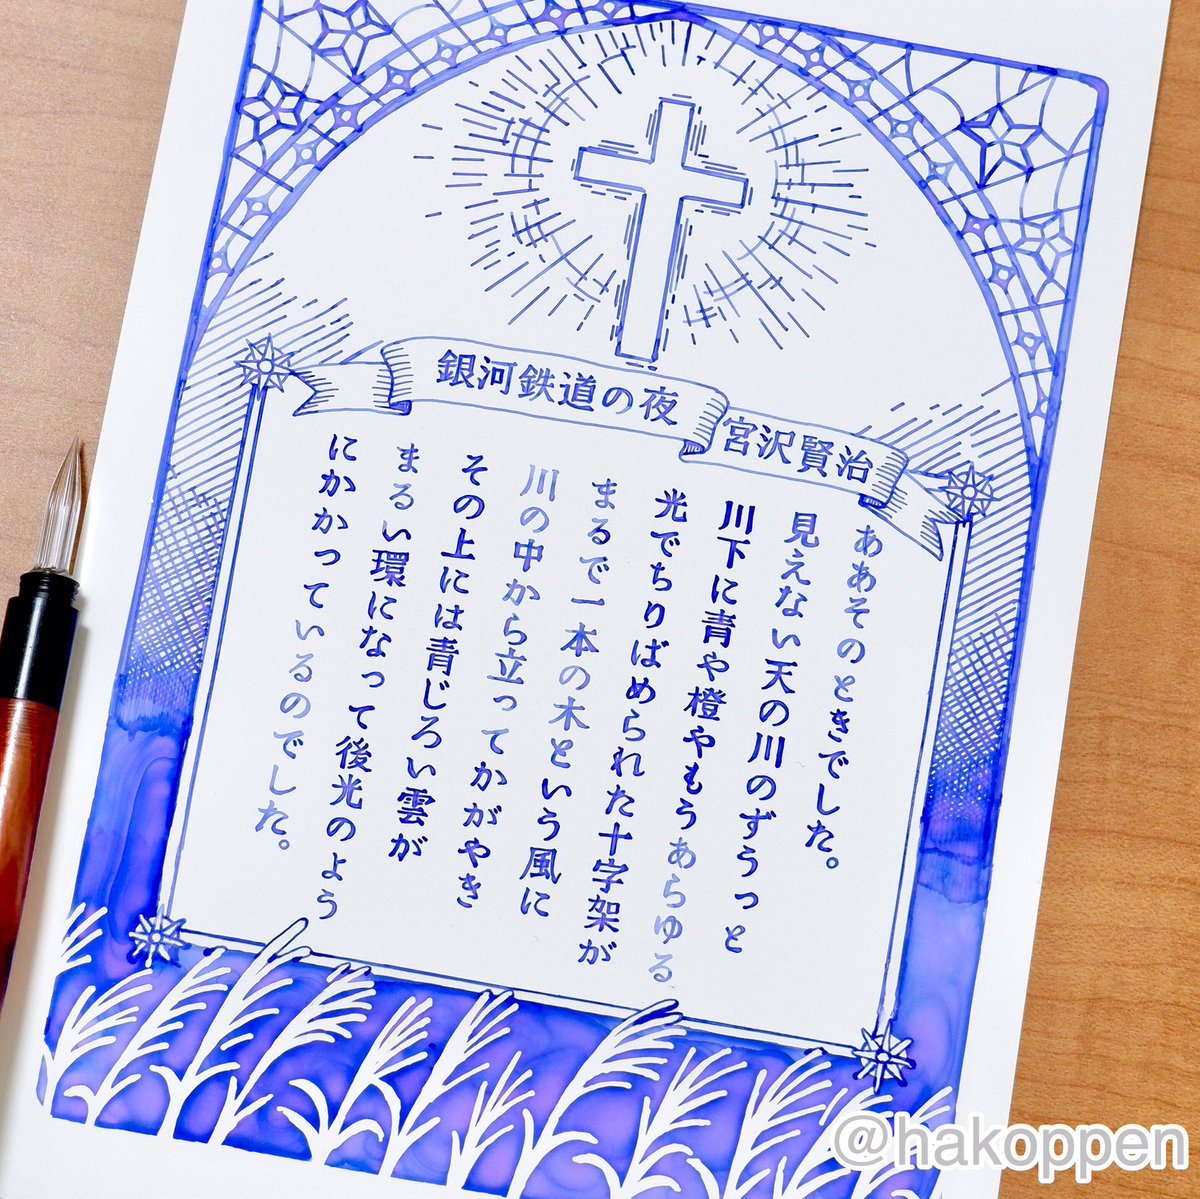 銀河鉄道の夜
宮沢賢治
ああそのときでした。
見えない天の川のずうっと
川下に青や橙やもうあらゆる
光でちりばめられた十字架が
まるで一本の木という風に
川の中から立ってかがやき
その上には青じろい雲が
まるい環になって後光のよう
にかかっているのでした。
@hakoppen